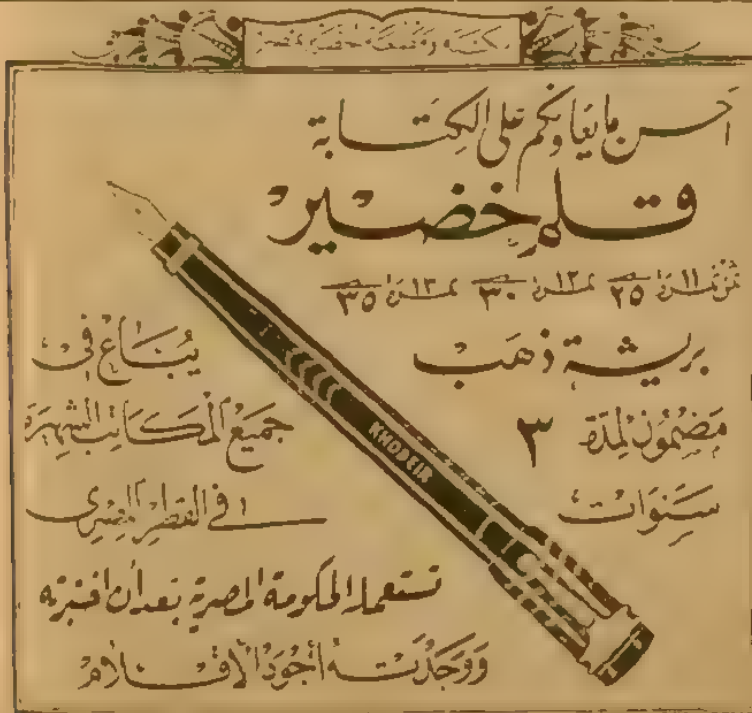 مكتبة ومطبعة خضير بمصر
احسن ما يعاونكم على الكتابة
قلم خضير
ثمن نمرة ١١ ٢٥ نمرة ١٢ ٣٠ نمرة ١٣ ٣٥
بريشة ذهب
مضمون لمدة ٣
سنوات
يباع في
جميع المكاتب الشهيرة
في القطر المصرى
KHODEIR
تستعمله الحكومة المصرية بعد أن اختبرته
ووجدته أجود الأقلام